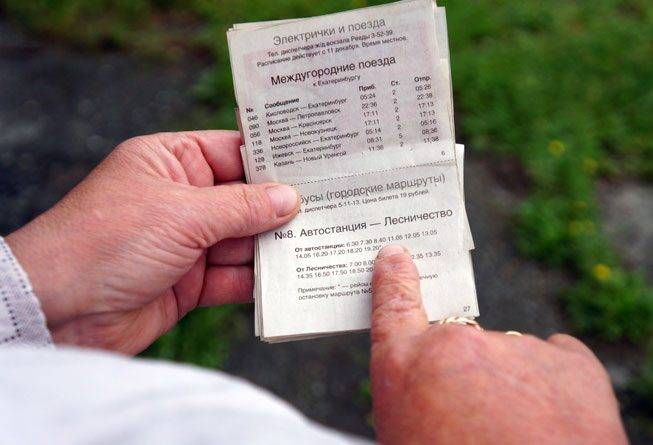 Электрички и поезда
Тел. диспетчера ж/д вокзала Ревды 3-52-39
Расписание действует с 11 декабря. Время местное.
Междугородние поезда
к Екатеринбургу
№ Сообщение Приб. Ст. Отпр.
046 Кисловодск — Екатеринбург 05:24 2 05:26
090 Москва — Петропавловск 22:36 2 22:38
056 Москва — Красноярск 17:11 2 17:13
118 Москва — Новокузнецк 17:11 2 17:13
336 Новороссийск — Екатеринбург 05:14 2 05:16
128 Ижевск — Екатеринбург 08:31 5 08:36
378 Казань — Новый Уренгой 11:36 2 11:38
6
бусы (городские маршруты)
диспетчера 5-11-13. Цена билета 19 рублей.
№8. Автостанция — Лесничество
От автостанции: 6.30 7.30 8.40 11.05 12.05 13.05
14.05 16.20 17.20 18.20 19.20*
От Лесничества: 7.00 8.00 12.35 13.35
14.35 16.50 17.50 18.50
Примечание: * — рейсы
остановку маршрута №5
27